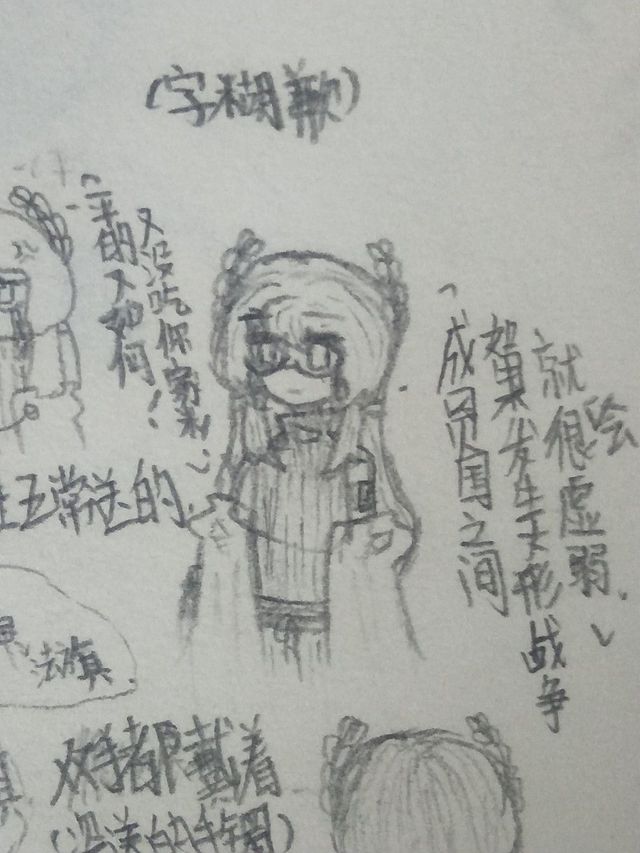 (字糊歉)
又没吃你家米、
平的又如何！
成员国之间
如果发生大形战争
就很虚弱.
绘
五常送的
法旗
双手都戴着
的手镯)